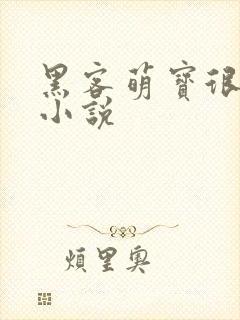 黑客萌寶很
小說
煩里奧